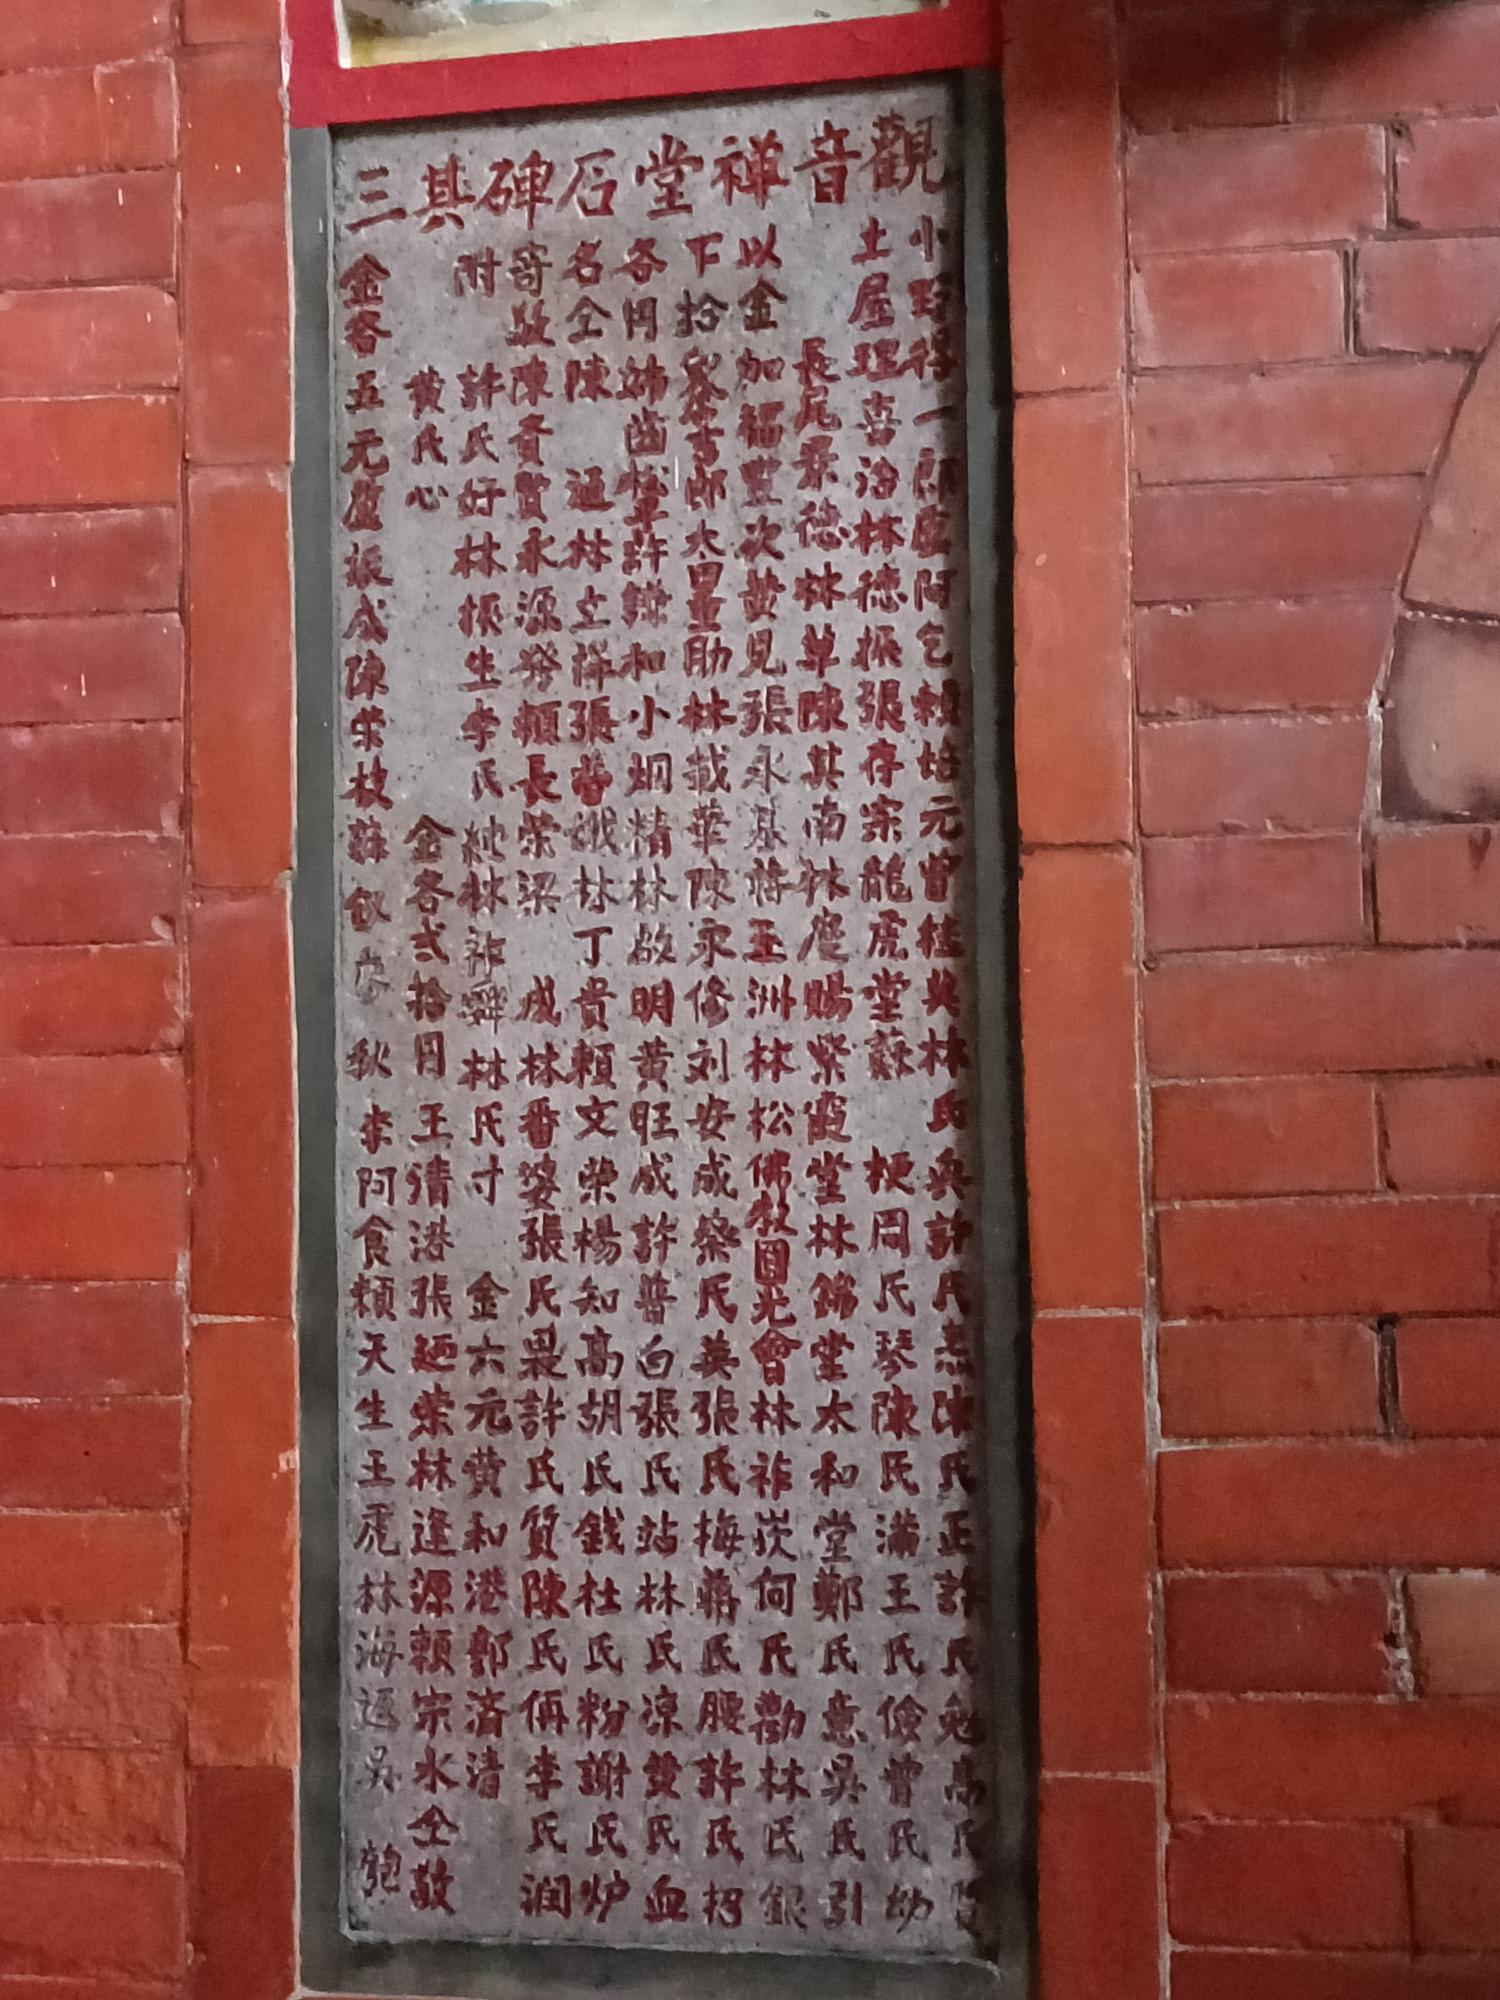 觀音禅堂石碑其三
小野得一郎盧阿乞賴培元曾桂與林氏與許氏𤆬陳氏正許氏勉高氏
土屋理喜治林德振張存宗龍虎堂蘇梗周氏琴陳氏满王氏儉曾氏幼
長尾景德林草陳其南林慶賜紫霞堂林錦堂太和堂鄭氏意吳氏引
以金加福豐次黄見張永基蒋玉洲林松佛教圓光會林祚炭何氏勸林氏銀
下拾吉郎太田重助林載華陳永修刘安成蔡氏英張氏梅蒋氏腰許氏招
各円姊齒松草許鎌和小烟精林啟明黄旺成許普白張氏站林氏凉黄氏血
名仝陳通林立祥張普娥林丁貴賴文荣楊知高胡氏錢杜氏粉謝氏炉
寄敬陳貴賢永源發賴長荣梁成林番婆張氏畏許氏質陳氏俩李氏潤
附許氏好林振生李氏純林祚舜林氏寸金六元黄和港鄭済清
黄氏心金各弍拾円王清港張迺荣林逢源賴宗水仝敬
金各五元盧振成陳荣枝蘇叙秋李阿食賴天生王虎林海返吳